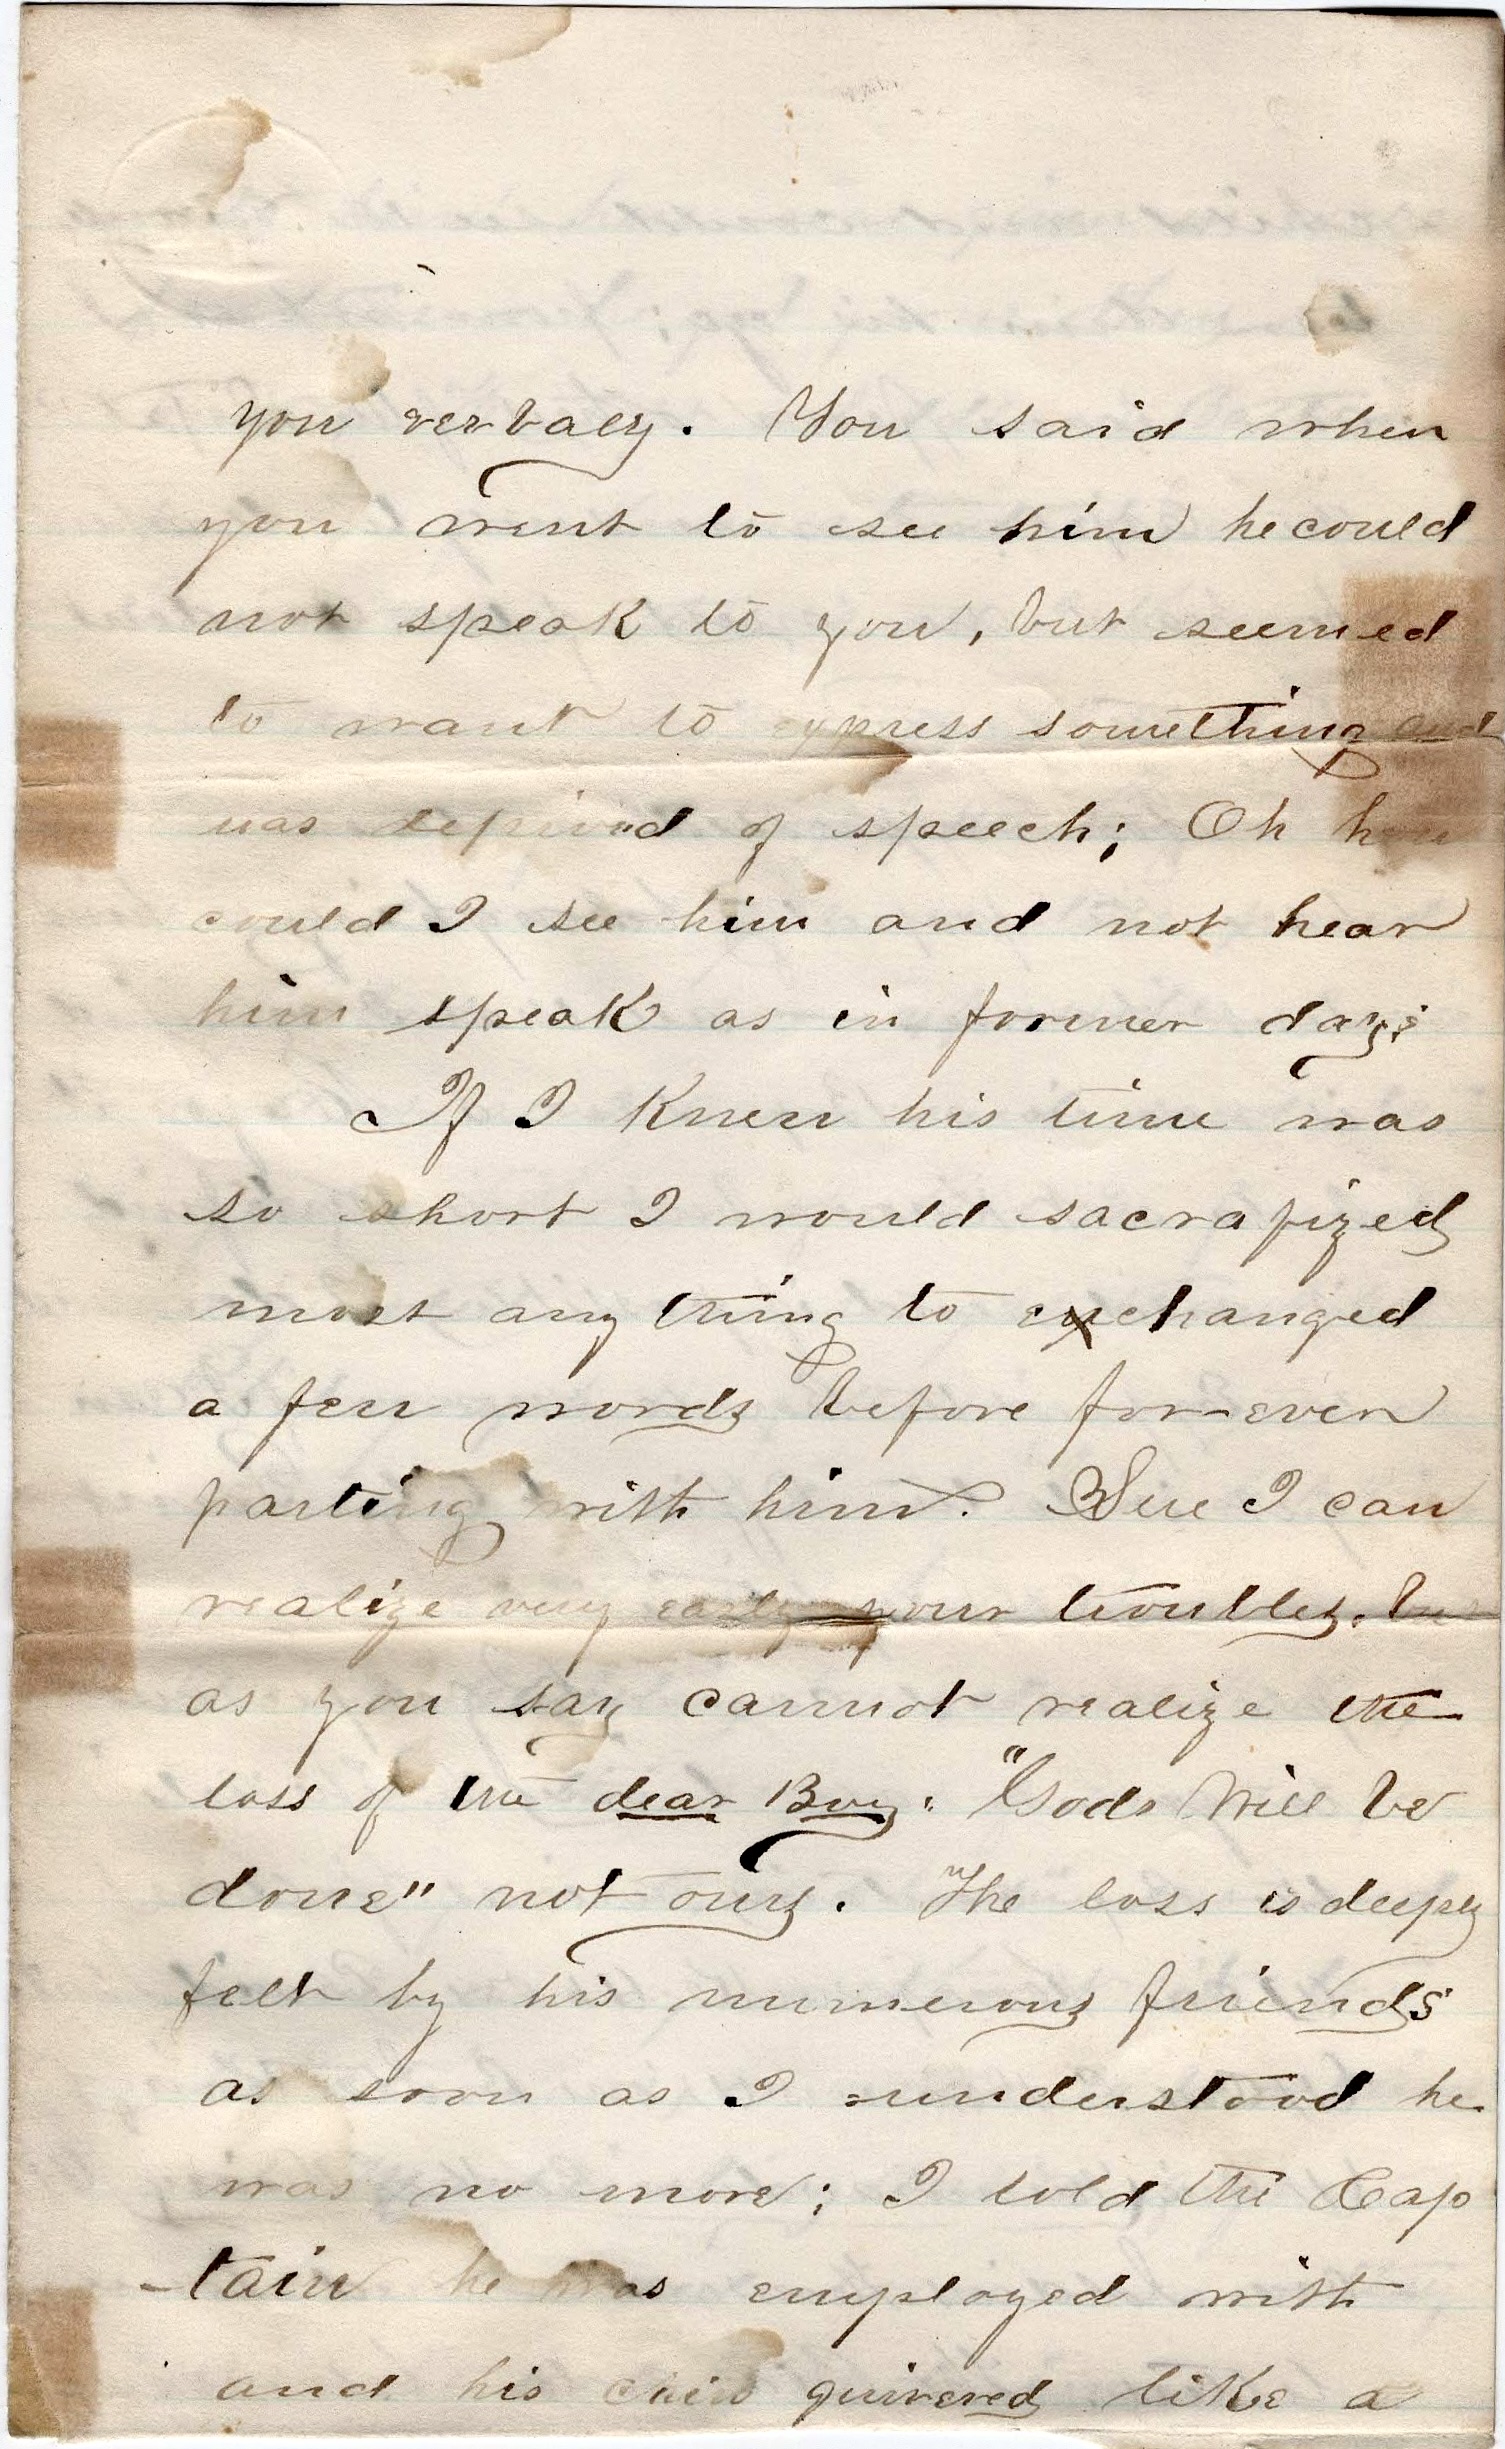 you verbaly. You said when
you went to see him he could
not speak to you, but seemed
to want to express something and
was deprived of speech; Oh how
could I see him and not hear
him speak as in former days;
If I knew his time was
so short I would sacrafized
most any thing to exchanged
a few words before for-ever
parting with him. Sue I can
realize very easily your troubles. but
as you say cannot realize the
loss of the dear Boy. "Gods Will be
done" not ours. The loss is deeply
felt by his numerous friends
as soon as I understood he
was no more; I told the Cap
-tain he was employed with
and his chin quivered like a